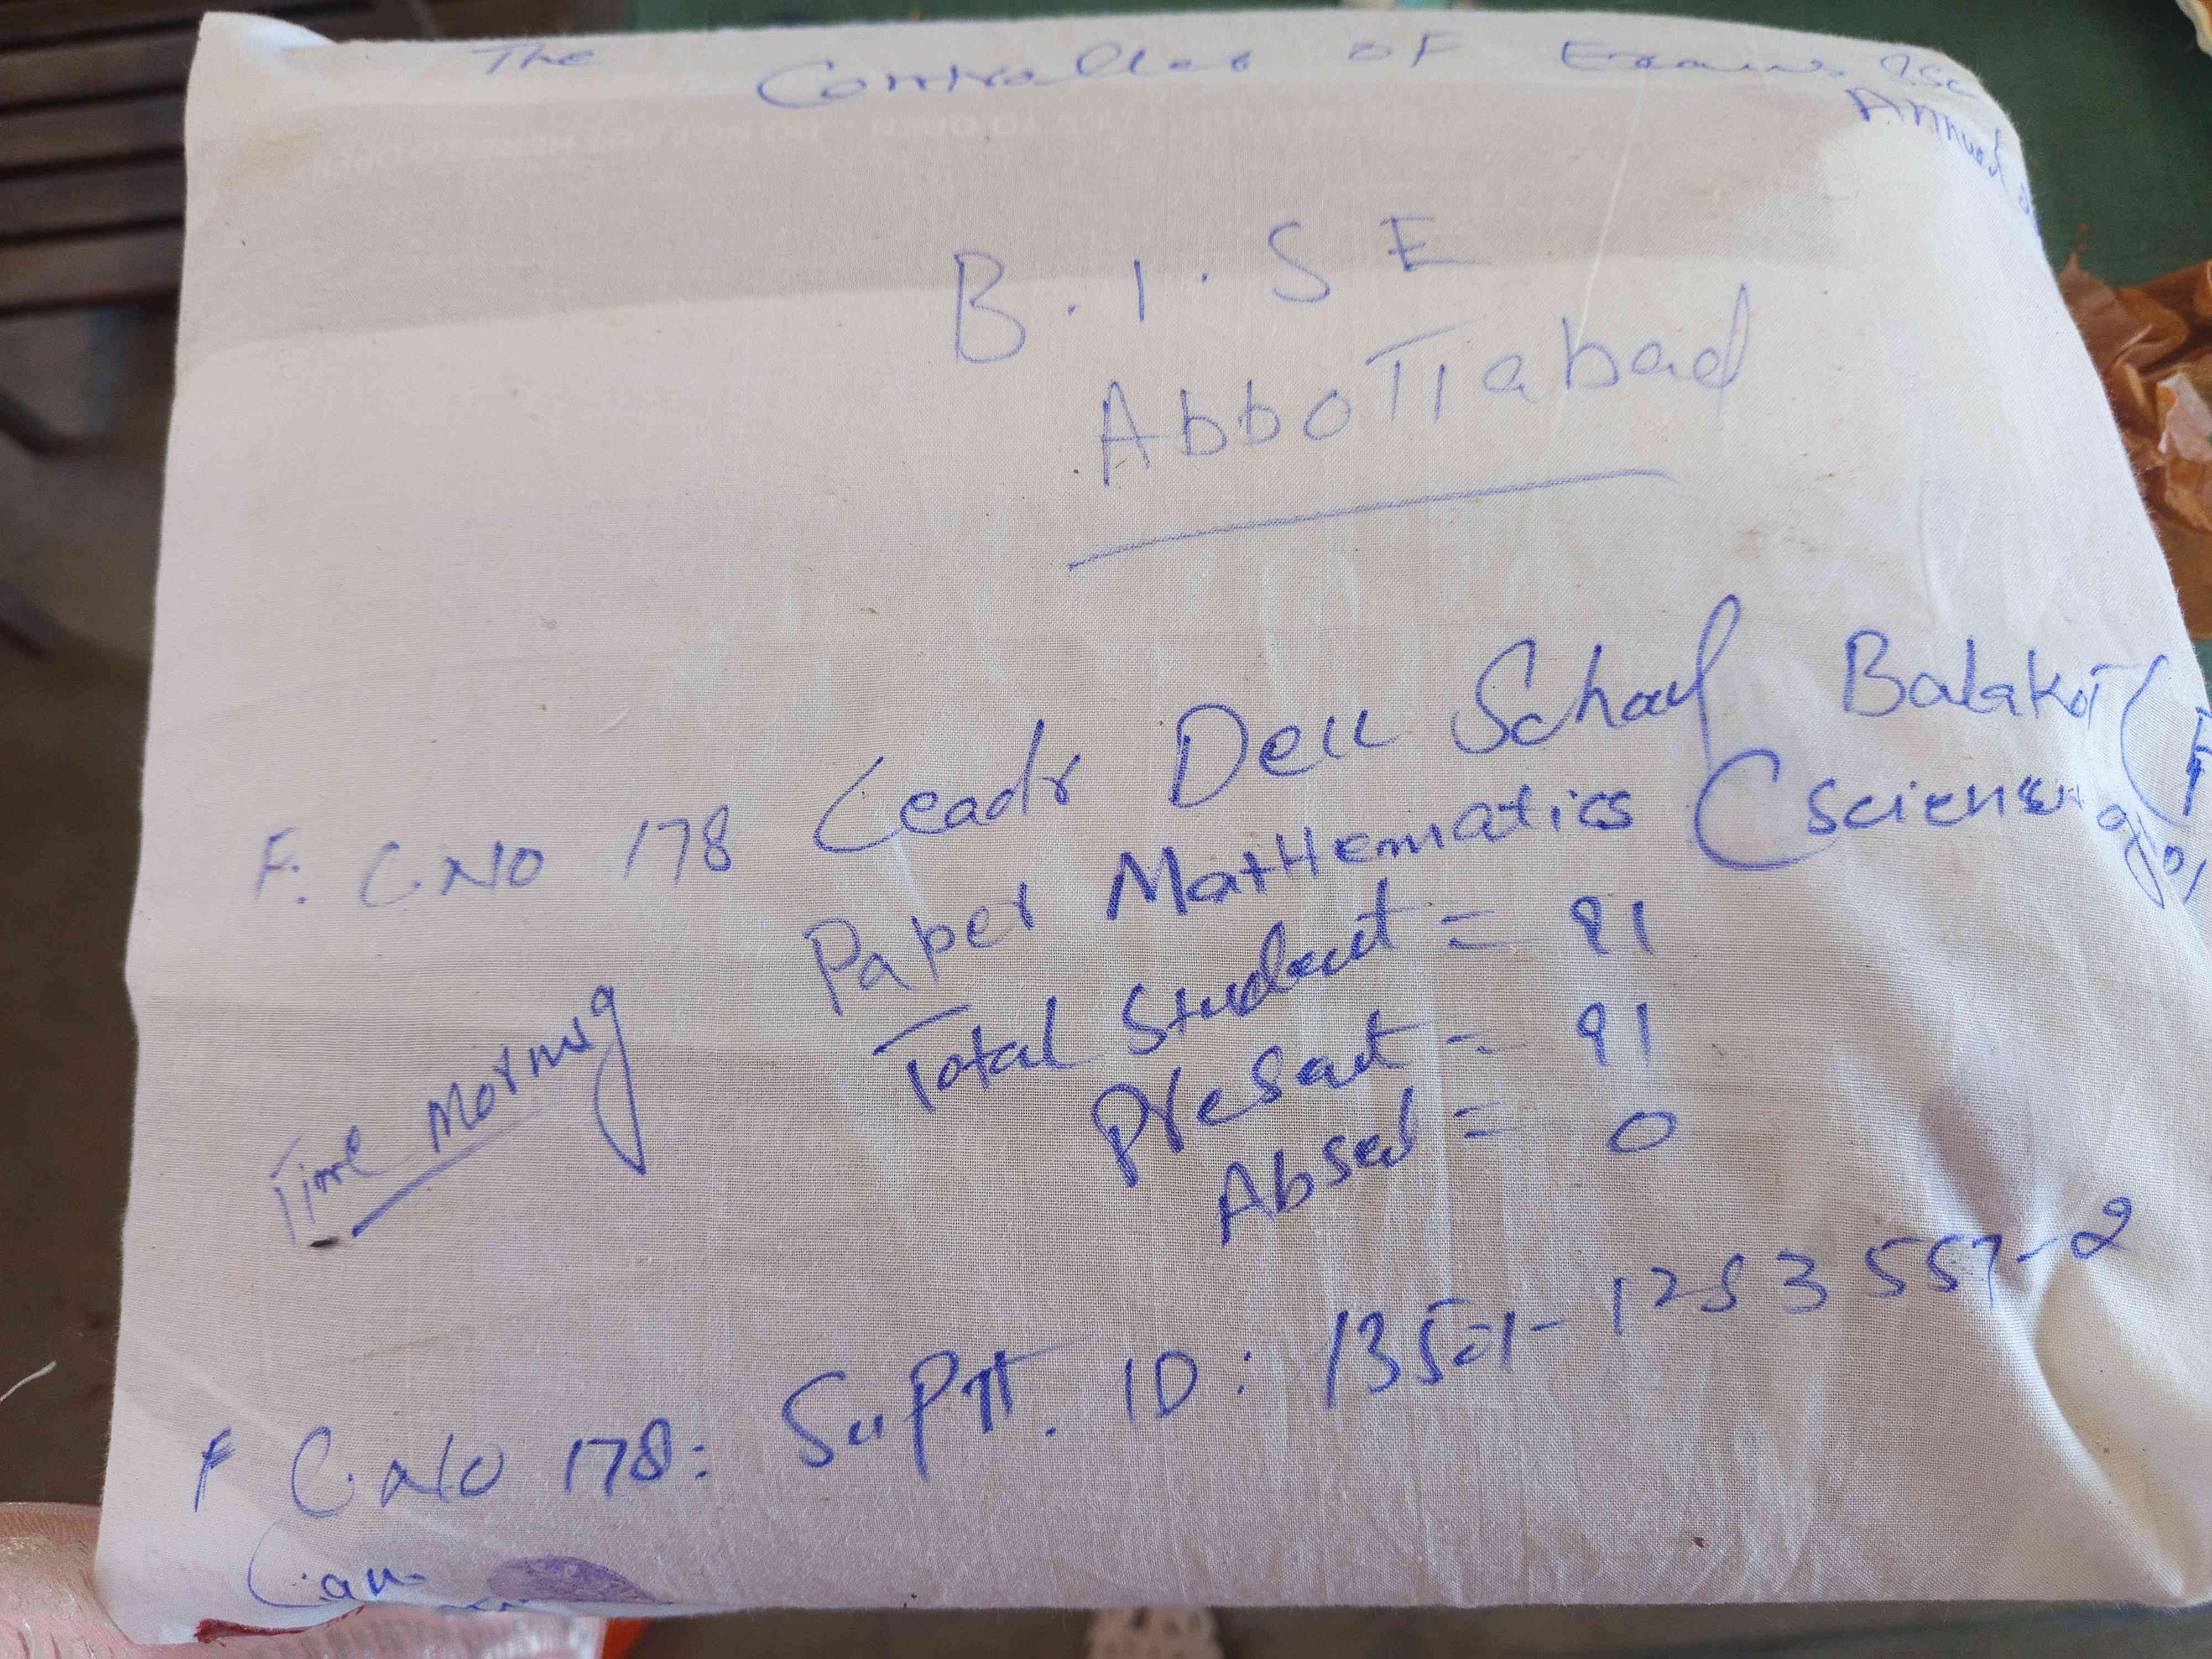 The Controller OF Exams SSC
Annual
B.I.S E
AbboTTabad
F. C.NO 178 Ceadr Dell School Balakot (F
Paper Mathematics (Science
Total Student = 91
Present = 91
Absent = 0
Time Morning
F C.NO 178: SupTT. ID: 13501-1253557-2